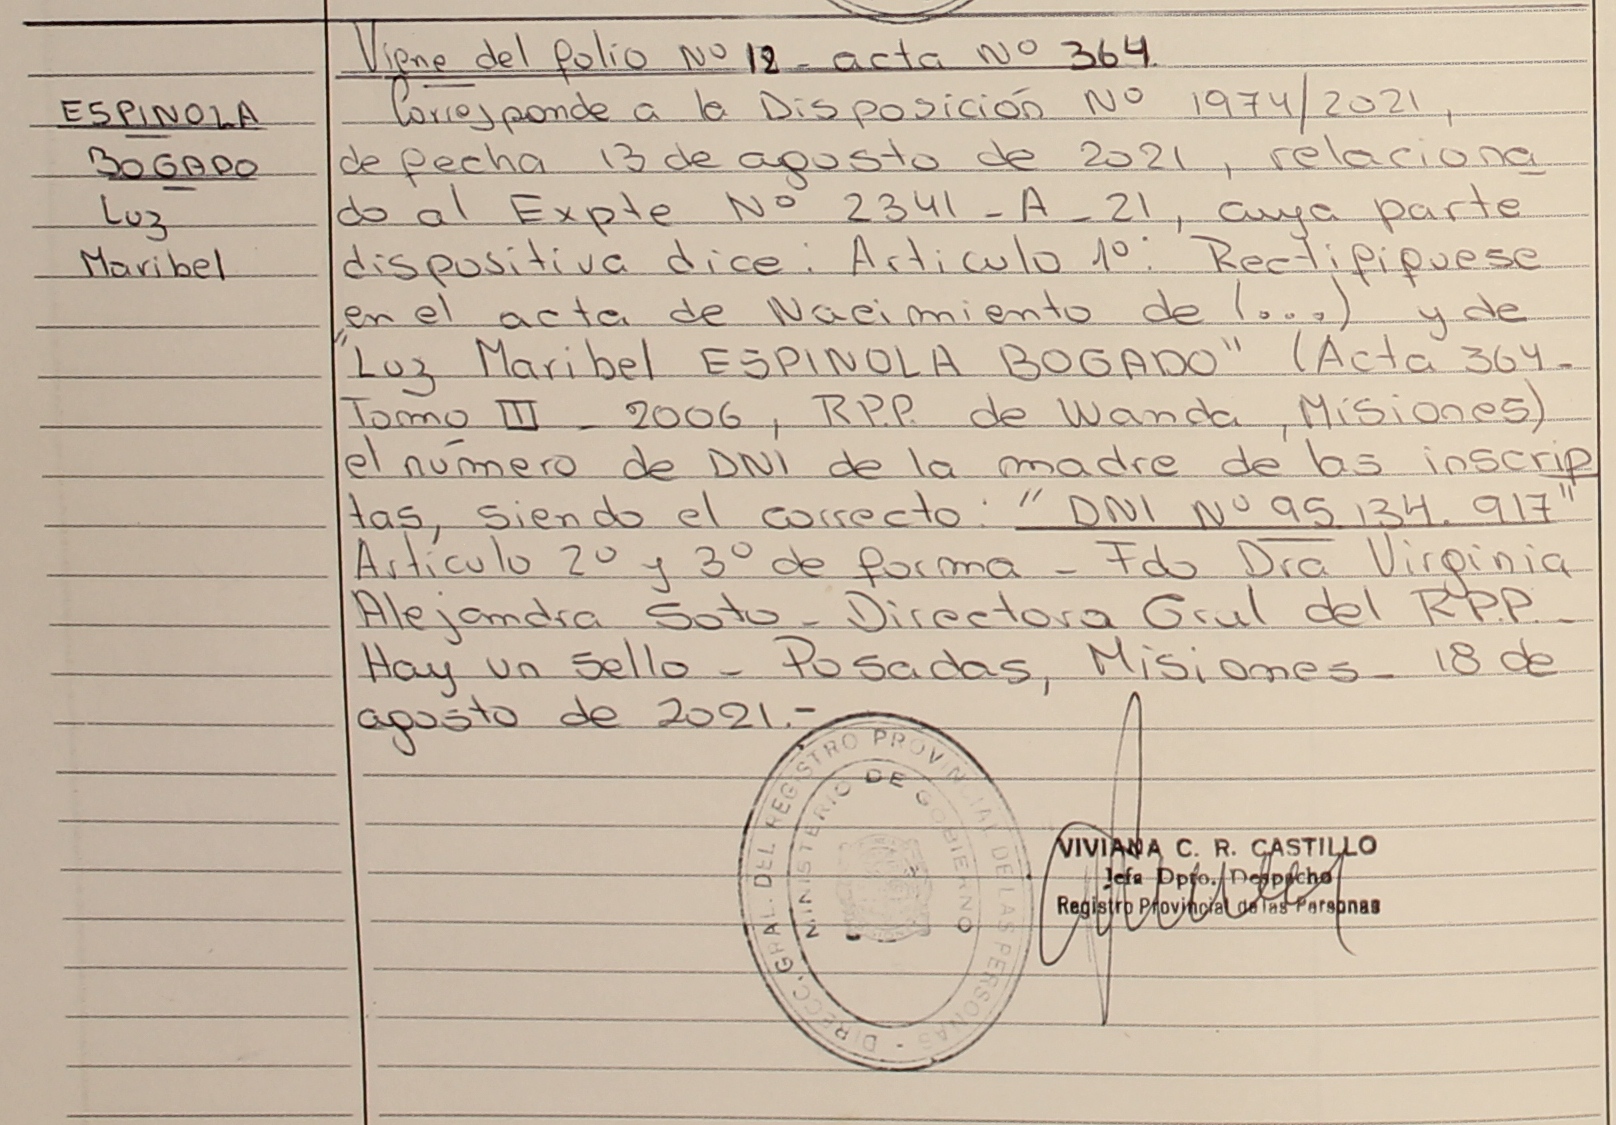 Viene del folio Nº 12 - acta Nº 364.
ESPINOLA
BOGADO
Luz
Maribel
Corresponde a la Disposición Nº 1974/2021,
de fecha 13 de agosto de 2021, relaciona
do al Expte Nº 2341 - A - 21, cuya parte
dispositiva dice: Articulo 1º: Rectifiquese
en el acta de Nacimiento de (...) y de
"Luz Maribel ESPINOLA BOGADO" (Acta 364 -
Tomo III - 2006, R.P.P. de Wanda, Misiones)
el número de DNI de la madre de las inscrip
tas, siendo el correcto: "DNI Nº 95.134.917"
Artículo 2º y 3º de forma - Fdo Dra Virginia
Alejandra Soto - Directora Gral del R.P.P. -
Hay un sello - Posadas, Misiones - 18 de
agosto de 2021.-
DIRECC. GRAL. DEL REGISTRO PROVINCIAL DE LAS PERSONAS -
MINISTERIO DE GOBIERNO
VIVIANA C. R. CASTILLO
Jefa Dpto. Despacho
Registro Provincial de las Personas